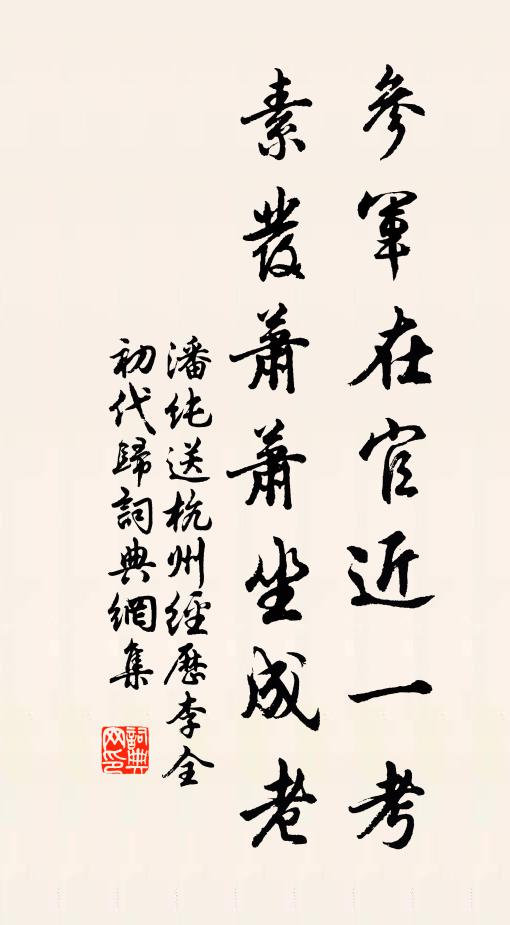 參軍在官近一考
素發蕭蕭坐成老
潘純送杭州經歷李全
初代歸詞典網集
詞典
网印